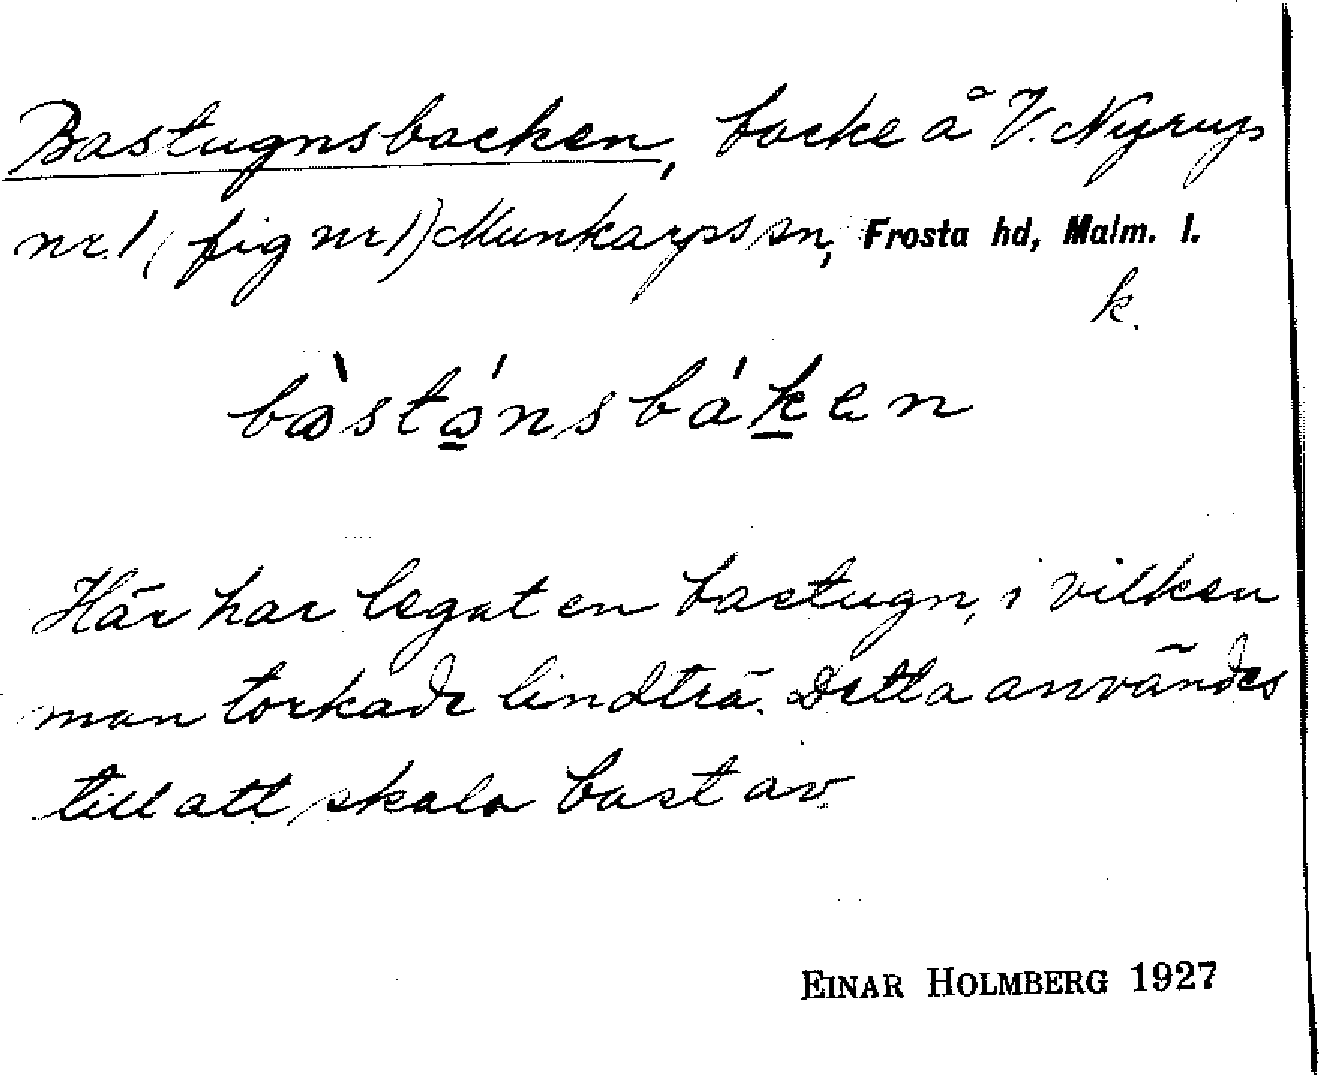 Bastugnsbacken, backe å V. Nyrup
nr 1 (fig nr 1) Munkarps sn, Frosta hd, Malm. l.
k.
bàstánsbáken
Här har legat en bastugn, i vilken
man torkade lindträ. Detta användes
till att skala bast av.
EINAR HOLMBERG 1927